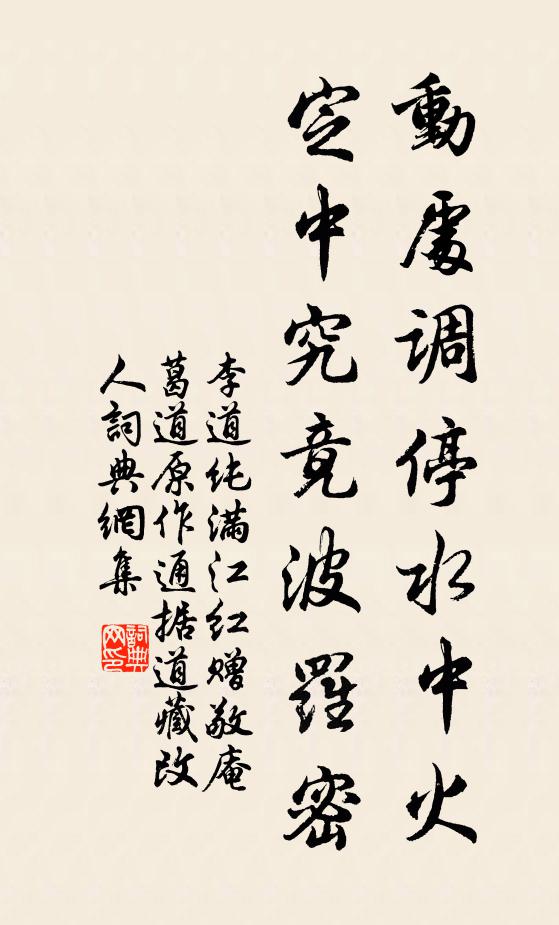 動處調停水中火
定中究竟波羅密
李道純滿江紅赠敬庵
葛道原作通据道藏改
人詞典網集
詞典网印